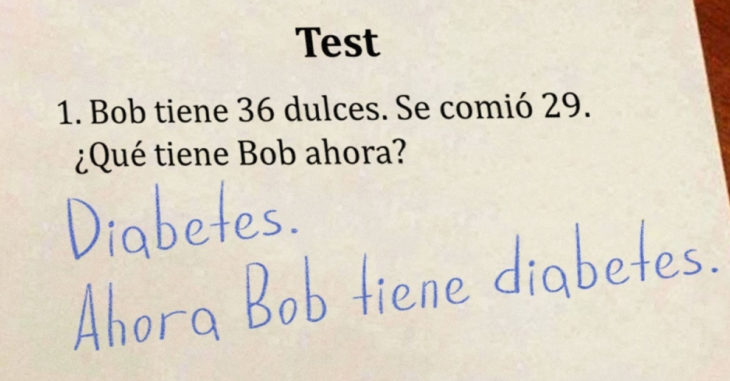 Test
1. Bob tiene 36 dulces. Se comió 29.
¿Qué tiene Bob ahora?
Diabetes.
Ahora Bob tiene diabetes.